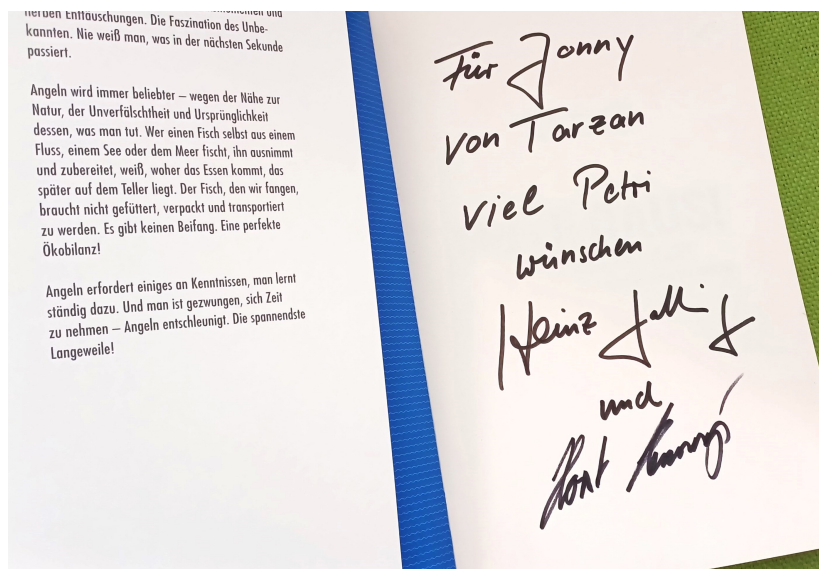 herben Enttäuschungen. Die Faszination des Unbe-
kannten. Nie weiß man, was in der nächsten Sekunde
passiert.
Angeln wird immer beliebter – wegen der Nähe zur
Natur, der Unverfälschtheit und Ursprünglichkeit
dessen, was man tut. Wer einen Fisch selbst aus einem
Fluss, einem See oder dem Meer fischt, ihn ausnimmt
und zubereitet, weiß, woher das Essen kommt, das
später auf dem Teller liegt. Der Fisch, den wir fangen,
braucht nicht gefüttert, verpackt und transportiert
zu werden. Es gibt keinen Beifang. Eine perfekte
Ökobilanz!
Angeln erfordert einiges an Kenntnissen, man lernt
ständig dazu. Und man ist gezwungen, sich Zeit
zu nehmen – Angeln entschleunigt. Die spannendste
Langeweile!
Für Jonny
von Tarzan
viel Petri
wünschen
Heinz
und